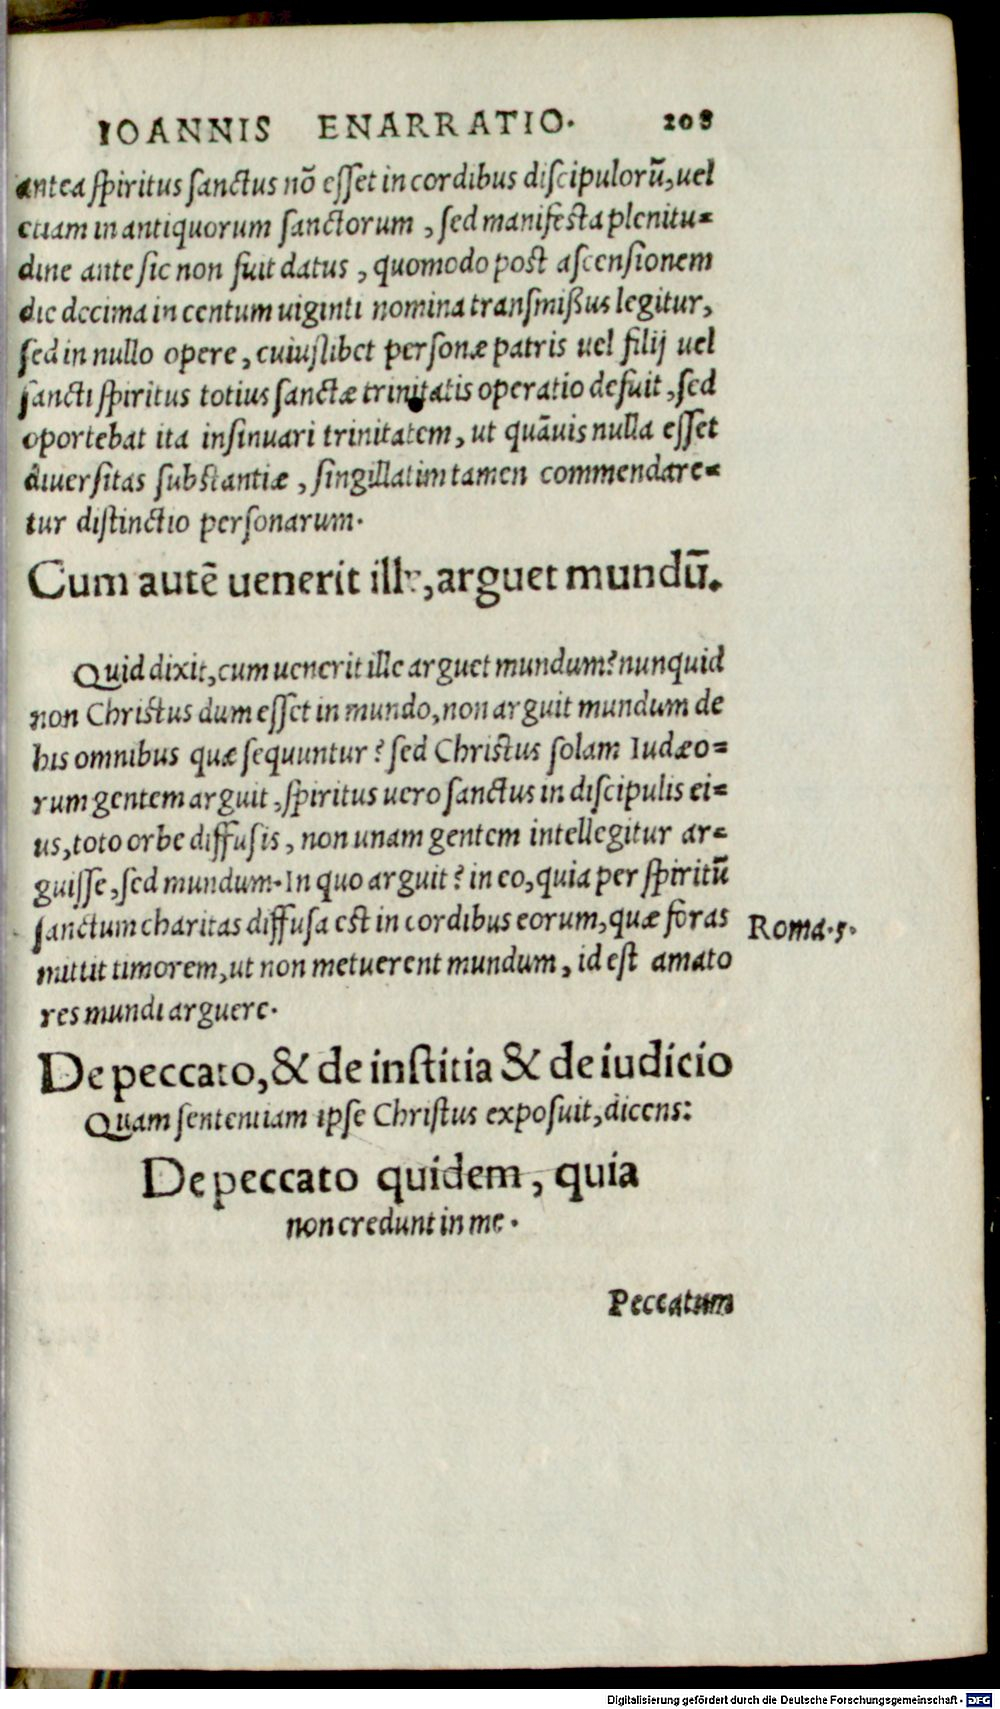 IOANNIS ENARRATIO. 208
antea spiritus sanctus nõ esset in cordibus discipulorũ, uel
etiam in antiquorum sanctorum, sed manifesta plenitu=
dine ante sic non fuit datus, quomodo post ascensionem
die decima in centum uiginti nomina transmißus legitur,
sed in nullo opere, cuiuslibet personæ patris uel filij uel
sancti spiritus totius sanctæ trinitatis operatio defuit, sed
oportebat ita insinuari trinitatem, ut quãuis nulla esset
diuersitas substantiæ, singillatim tamen commendare=
tur distinctio personarum.
Cum autẽ uenerit ille, arguet mundũ.
Quid dixit, cum uenerit ille arguet mundum? nunquid
non Christus dum esset in mundo, non arguit mundum de
his omnibus quæ sequuntur? sed Christus solam Iudæo=
rum gentem arguit, spiritus uero sanctus in discipulis ei=
us, toto orbe diffusis, non unam gentem intellegitur ar=
guisse, sed mundum. In quo arguit? in eo, quia per spiritũ
sanctum charitas diffusa est in cordibus eorum, quæ foras
Roma.5.
mittit timorem, ut non metuerent mundum, id est amato
res mundi arguere.
De peccato, & de institia & de iudicio
Quam sententiam ipse Christus exposuit, dicens:
De peccato quidem, quia
non credunt in me.
Peccatum
Digitalisierung gefördert durch die Deutsche Forschungsgemeinschaft - DFG